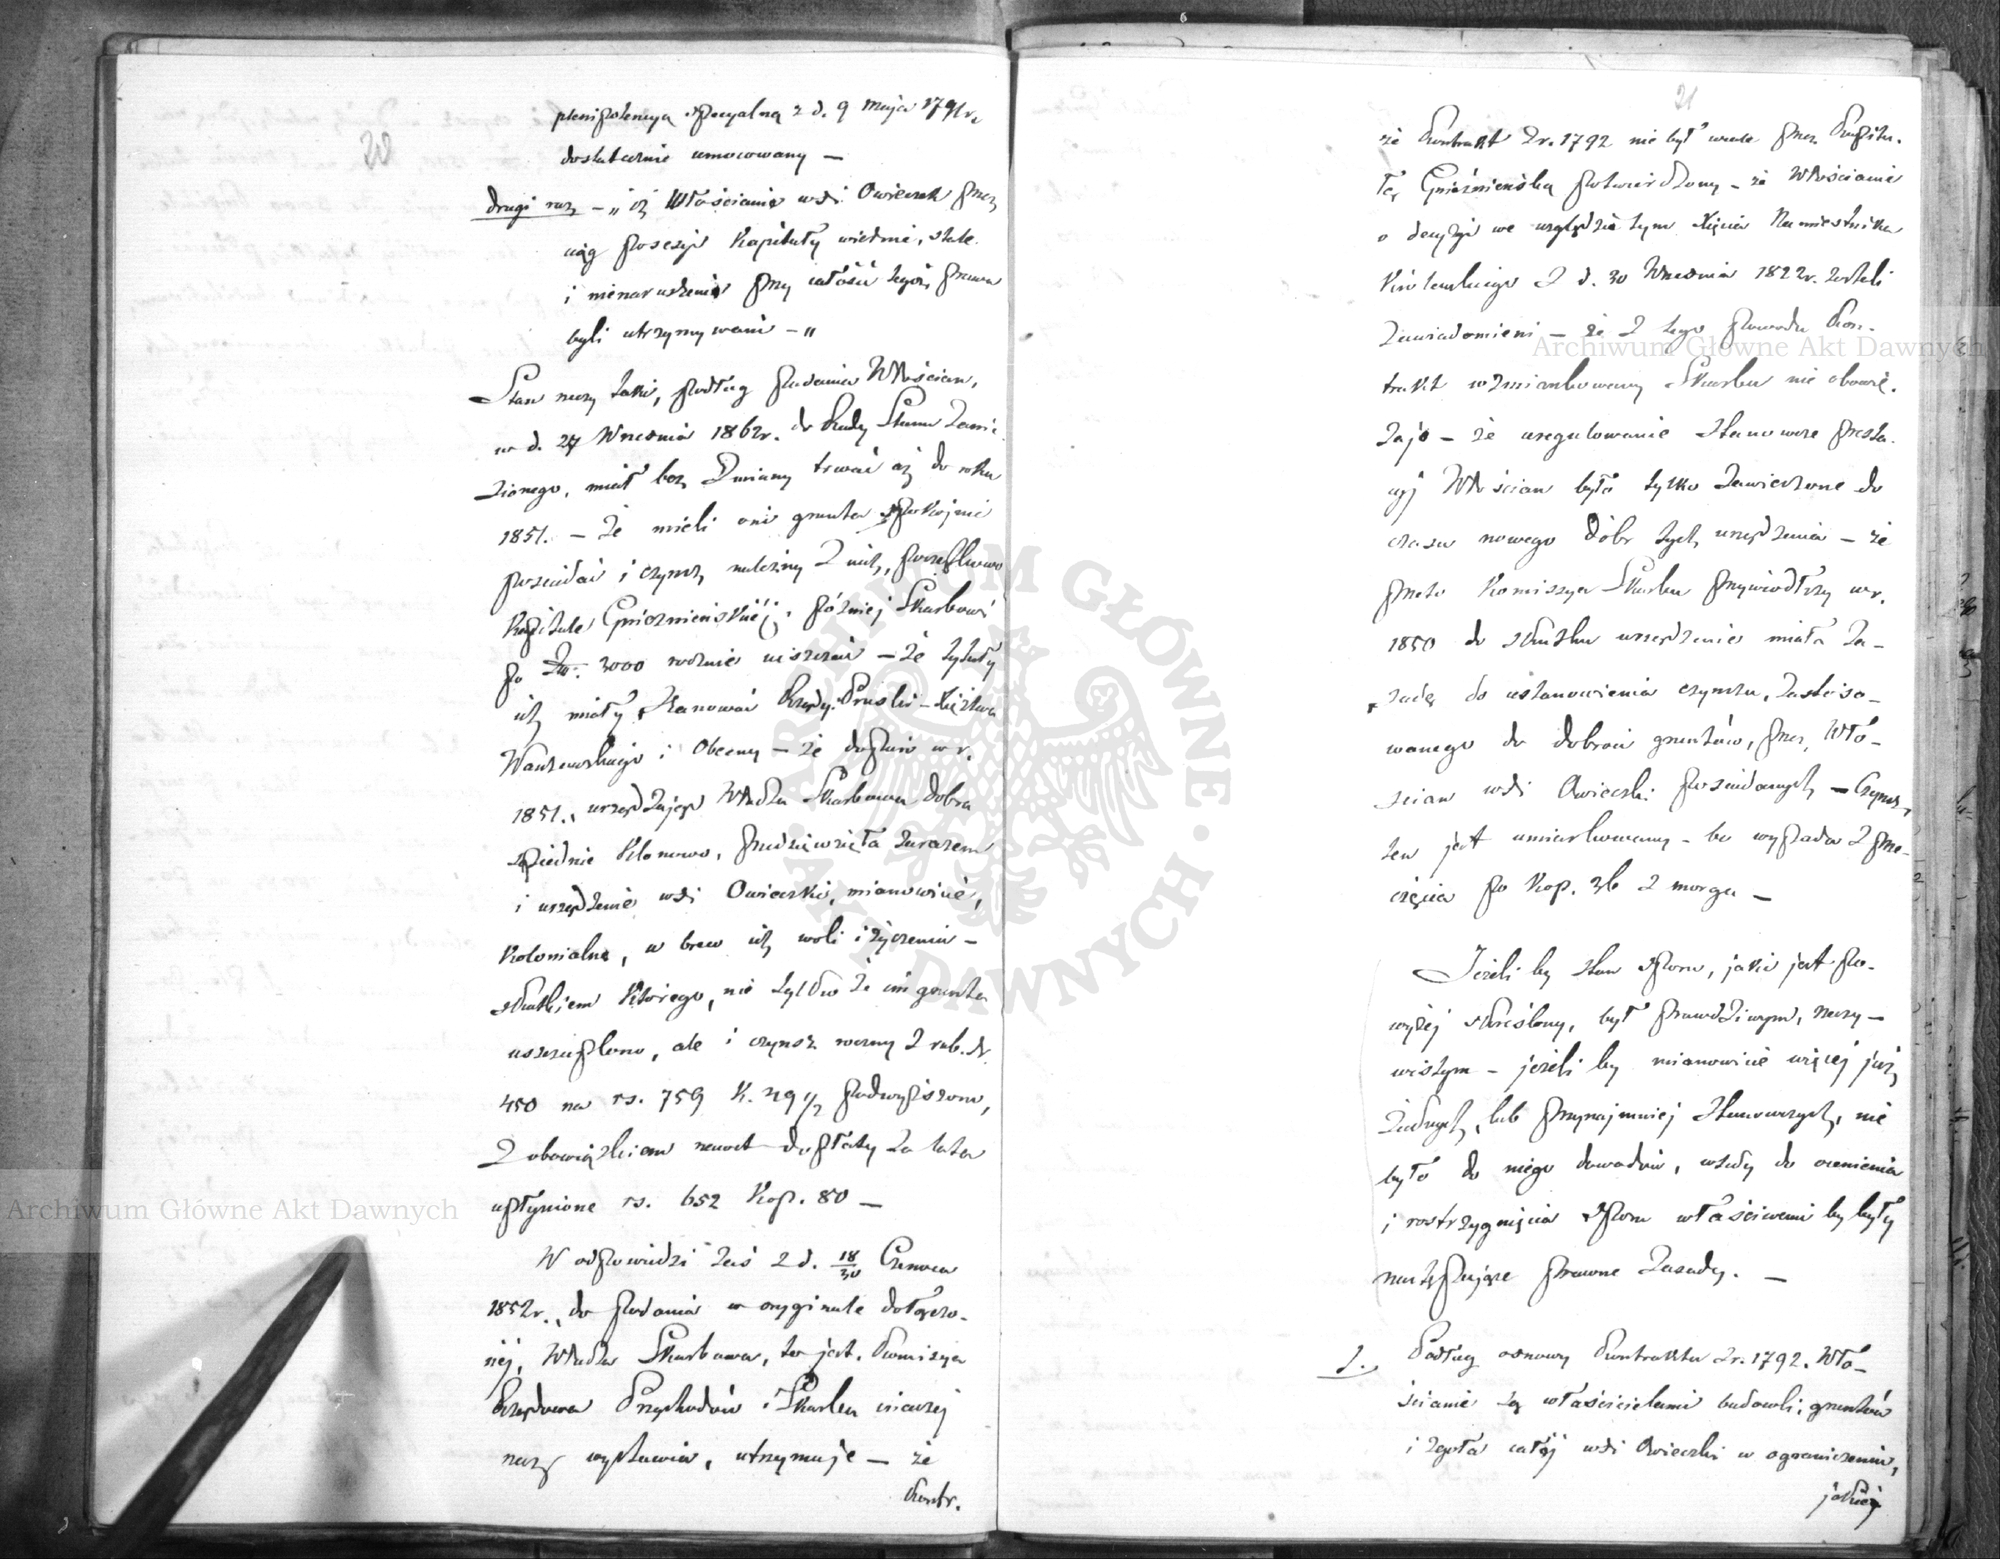 20
plenipotencyą specyalną z d. 9 Maja 1791 r.
dostatecznie umocowany —
drugi raz — „iż Włościanie wsi Owieczek przez
ciąg posesyi Kapituły wiernie, stale
i nienaruszenie przy całości tegoż prawa
byli utrzymywani — „
Stan rzeczy taki, podług podania Włościan,
w d. 27 Września 1862 r. do Rady Stanu zanie-
sionego, miał bez zmiany trwać aż do roku
1851. — Że mieli oni grunta spokojnie
posiadać i czynsz należny z nich, poczętkowo
Kapitule Gnieznieńskiéj, późniéj Skarbowi
po Złp. 3000 rocznie uiszczać — że tytuły
ich miały szanować Rządy: Pruski — Xięztwa
Warszawskiego i Obecny — że dopiero w r.
1851., urządzając Władza Skarbowa dobra
sąsiednie Klonowo, przedsięwzięła zarazem
i urządzenie wsi Owieczki, mianowicie,
Kolonialne, w brew ich woli i życzeniu —
skutkiem którego, nie tylko że im grunta
uszczuplono, ale i czynsz roczny z rub. sr.
450 na rs. 759 k. 49 1/2 podwyższono,
z obowiązkiem nawet dopłaty za lata
upłynione rs. 652 Kop. 80 —
W odpowiedzi zaś z d. 18/30 Czerwca
1852 r., do podania w oryginale dołączo-
néj, Władza Skarbowa, to jest, Kommisya
Rządowa Przychodów i Skarbu inaczej
rzecz wystawia, utrzymuje — że
Kontr.
21
że Kontrakt z r. 1792 nie był wcale przez Kapitu-
łę Gnieźnieńską potwierdzony — że Włościanie
o decyzyi we względzie tym Xięcia Namiestnika
Królewskiego z d. 30 Września 1822 r. zostali
zawiadomieni — że z tego powodu Kon-
trakt wzmiankowany Skarbu nie obowią-
zuje — że uregulowanie stanowcze presta-
cyj Włościan było tylko zawieszone do
czasu nowego dóbr tych urządzenia — że
przeto Kommissya Skarbu przywiódłszy w r.
1850 do skutku urządzenie miała za-
sadę do ustanowienia czynszu, zastóso-
wanego do dobroci gruntów, przez Wło-
ścian wsi Owieczki posiadanych — Czynsz
ten jest umiarkowany — bo wypada z prze-
cięcia po Kop. 36 z morga —
Jeżeli by stan sporu, jaki jest po-
wyżéj skréślony, był prawdziwym, rzeczy-
wistym — jeżeli by mianowicie więcéj już
żadnych, lub przynajmniéj stanowczych, nie
było do niego dowodów, wtedy do ocenienia
i rozstrzygnięcia sporu właściwemi by były
następujące prawne zasady. —
1. Podług osnowy Kontraktu z r. 1792. Wło-
ścianie są właścicielami budowli, gruntów
i zgoła całéj wsi Owieczki w ograniczeniu,
jakiéj
Archiwum Główne Akt Dawnych
Archiwum Główne Akt Dawnych
ARCHIWUM GŁÓWNE · AKT DAWNYCH ·